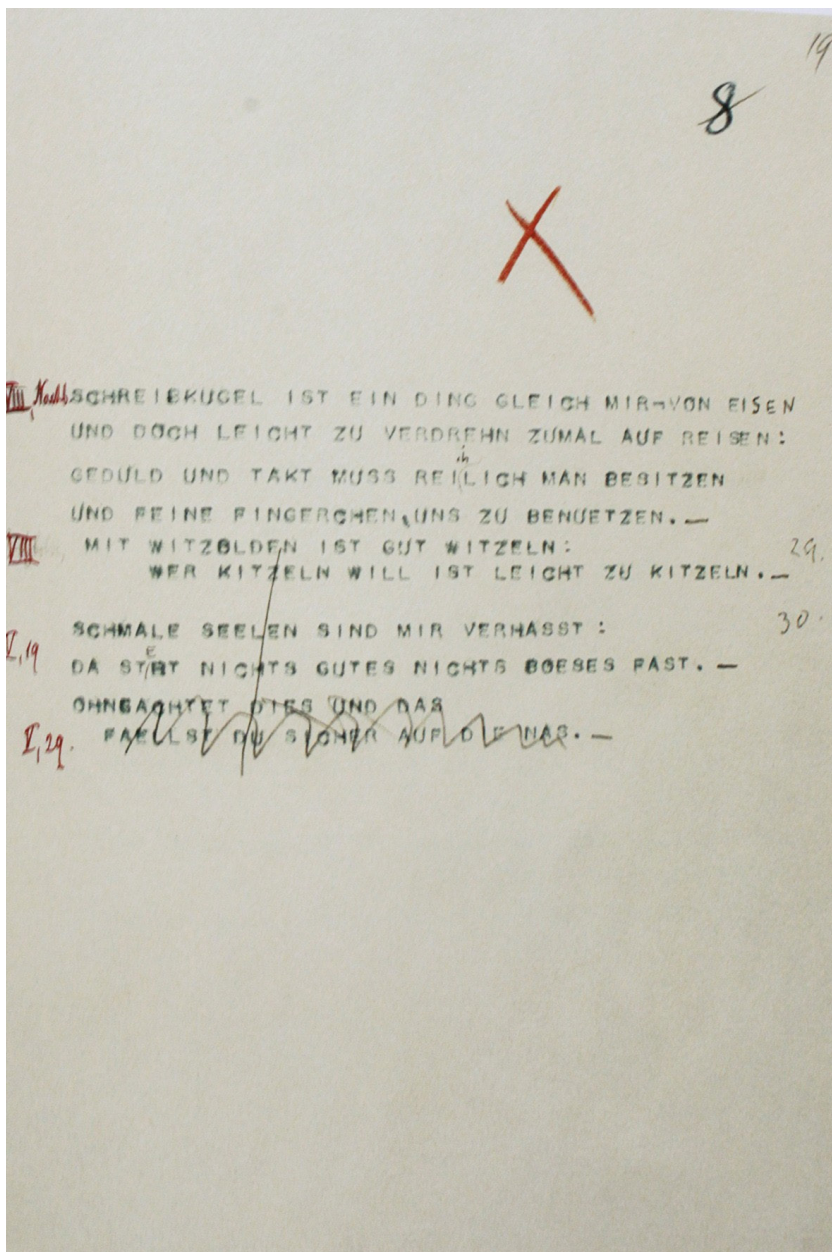 19
8
VIII, Nachl. SCHREIBKUGEL IST EIN DING GLEICH MIR¬VON EISEN
UND DOCH LEICHT ZU VERDREHN ZUMAL AUF REISEN:
ch
GEDULD UND TAKT MUSS REILICH MAN BESITZEN
UND FEINE FINGERCHEN, UNS ZU BENUETZEN.—
VIII MIT WITZBLDEN IST GUT WITZELN: 29.
WER KITZELN WILL IST LEICHT ZU KITZELN.—
SCHMALE SEELEN SIND MIR VERHASST: 30.
E
V, 19 DA STRT NICHTS GUTES NICHTS BOESES FAST.—
OHNGACHTET DIES UND DAS
V, 29. FAELLST DU SICHER AUF DIE NAS.—